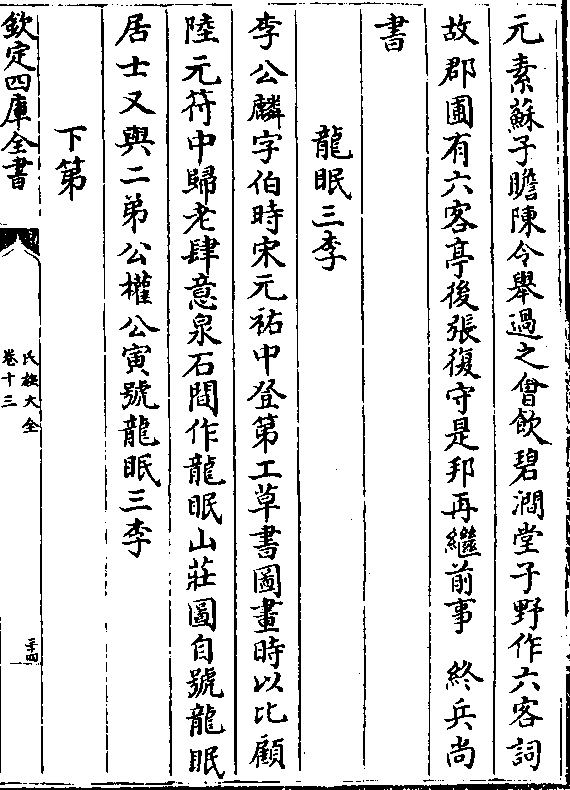 元素蘇子瞻陳令舉過之㑹飲碧瀾堂子野作六客詞
故郡圃有六客亭後張復守是邦再繼前事　終兵尚
書
龍眠三李
李公麟字伯時宋元祐中登第工草書圖畫時以比顧
陸元符中歸老肆意泉石間作龍眠山莊圖自號龍眠
居士又與二弟公權公寅號龍眠三李
下第
欽定四庫全書
氏族大全
卷十三
二十四